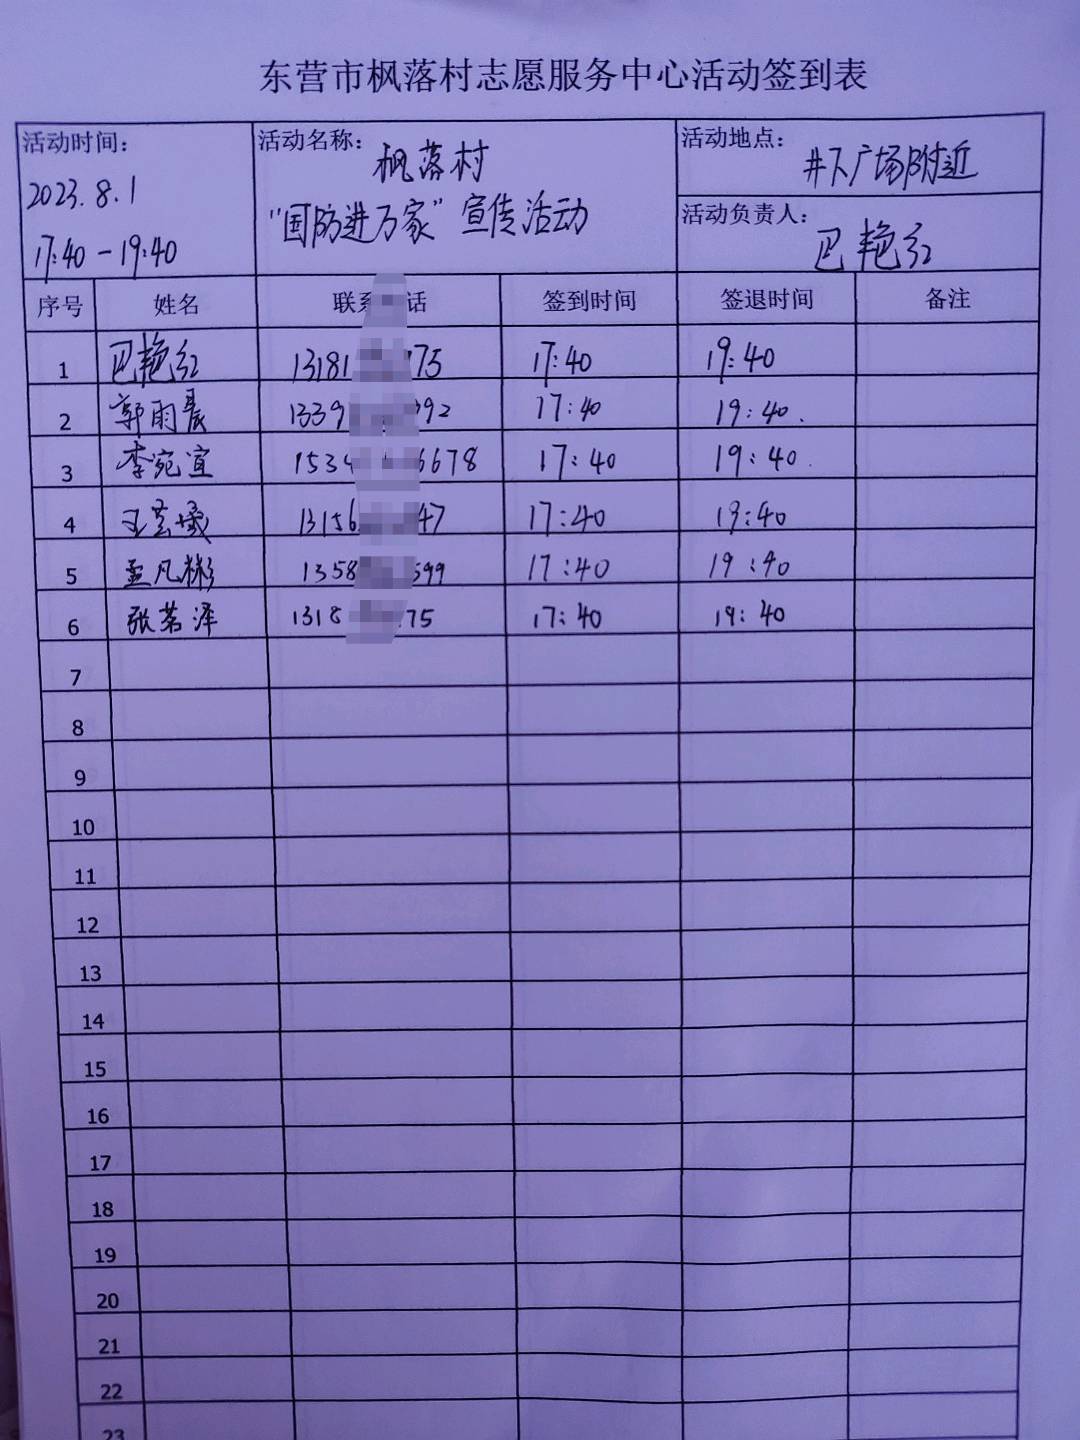 东营市枫落村志愿服务中心活动签到表
活动时间:
2023.8.1
17:40-19:40
活动名称: 枫落村
"国防进万家"宣传活动
活动地点: 井下广场附近
活动负责人: 巴艳红
序号 姓名 联系 话 签到时间 签退时间 备注
1 巴艳红 13181 175 17:40 19:40
2 郭雨晨 1339 392 17:40 19:40.
3 李宛宜 1534 6678 17:40 19:40.
4 王芸 13156 47 17:40 19:40
5 孟凡彬 1358 599 17:40 19:40
6 张茗泽 1318 75 17:40 19:40
7
8
9
10
11
12
13
14
15
16
17
18
19
20
21
22
23